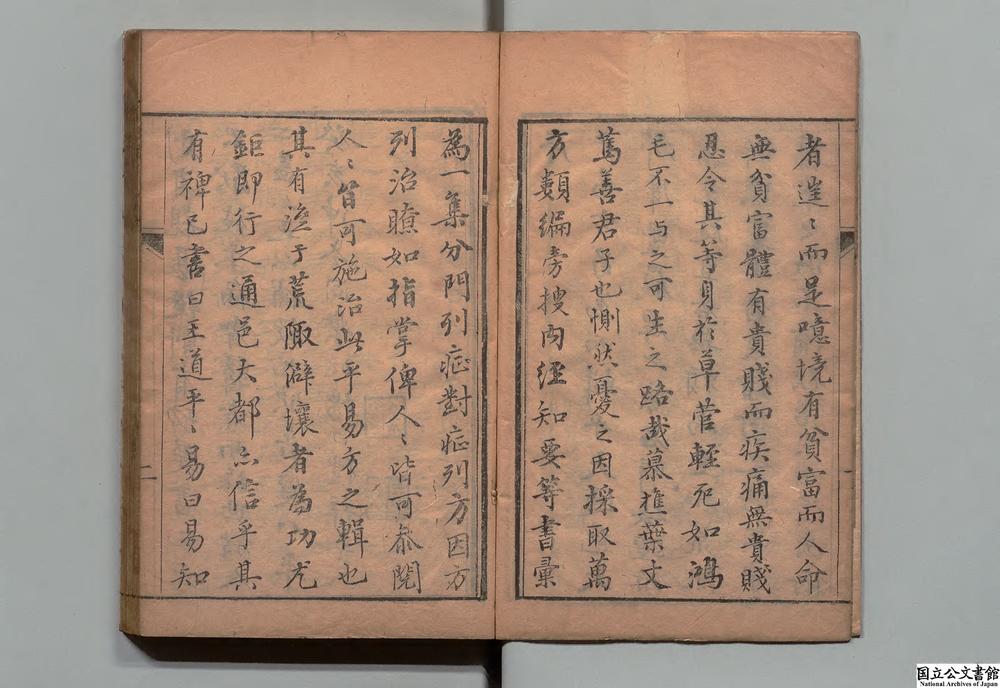 者遑〻而是噫境有貧富而人命
無貧富體有貴賤而疾痛無貴賤
忍令其等身於草菅輕死如鴻
毛不一与之可生之路哉慕樵葉丈
篤善君子也惻然憂之因採取萬
方類編旁搜内經知要等書彙
為一集分門列症對症列方因方
列治瞭如指掌俾人〻皆可叅閱
人〻皆可施治此平易方之輯也
其有濟于荒陬僻壤者為功尤
鉅即行之通邑大都亦信乎其
有裨已書曰王道平〻易曰易知
二
国立公文書館
National Archives of Japan